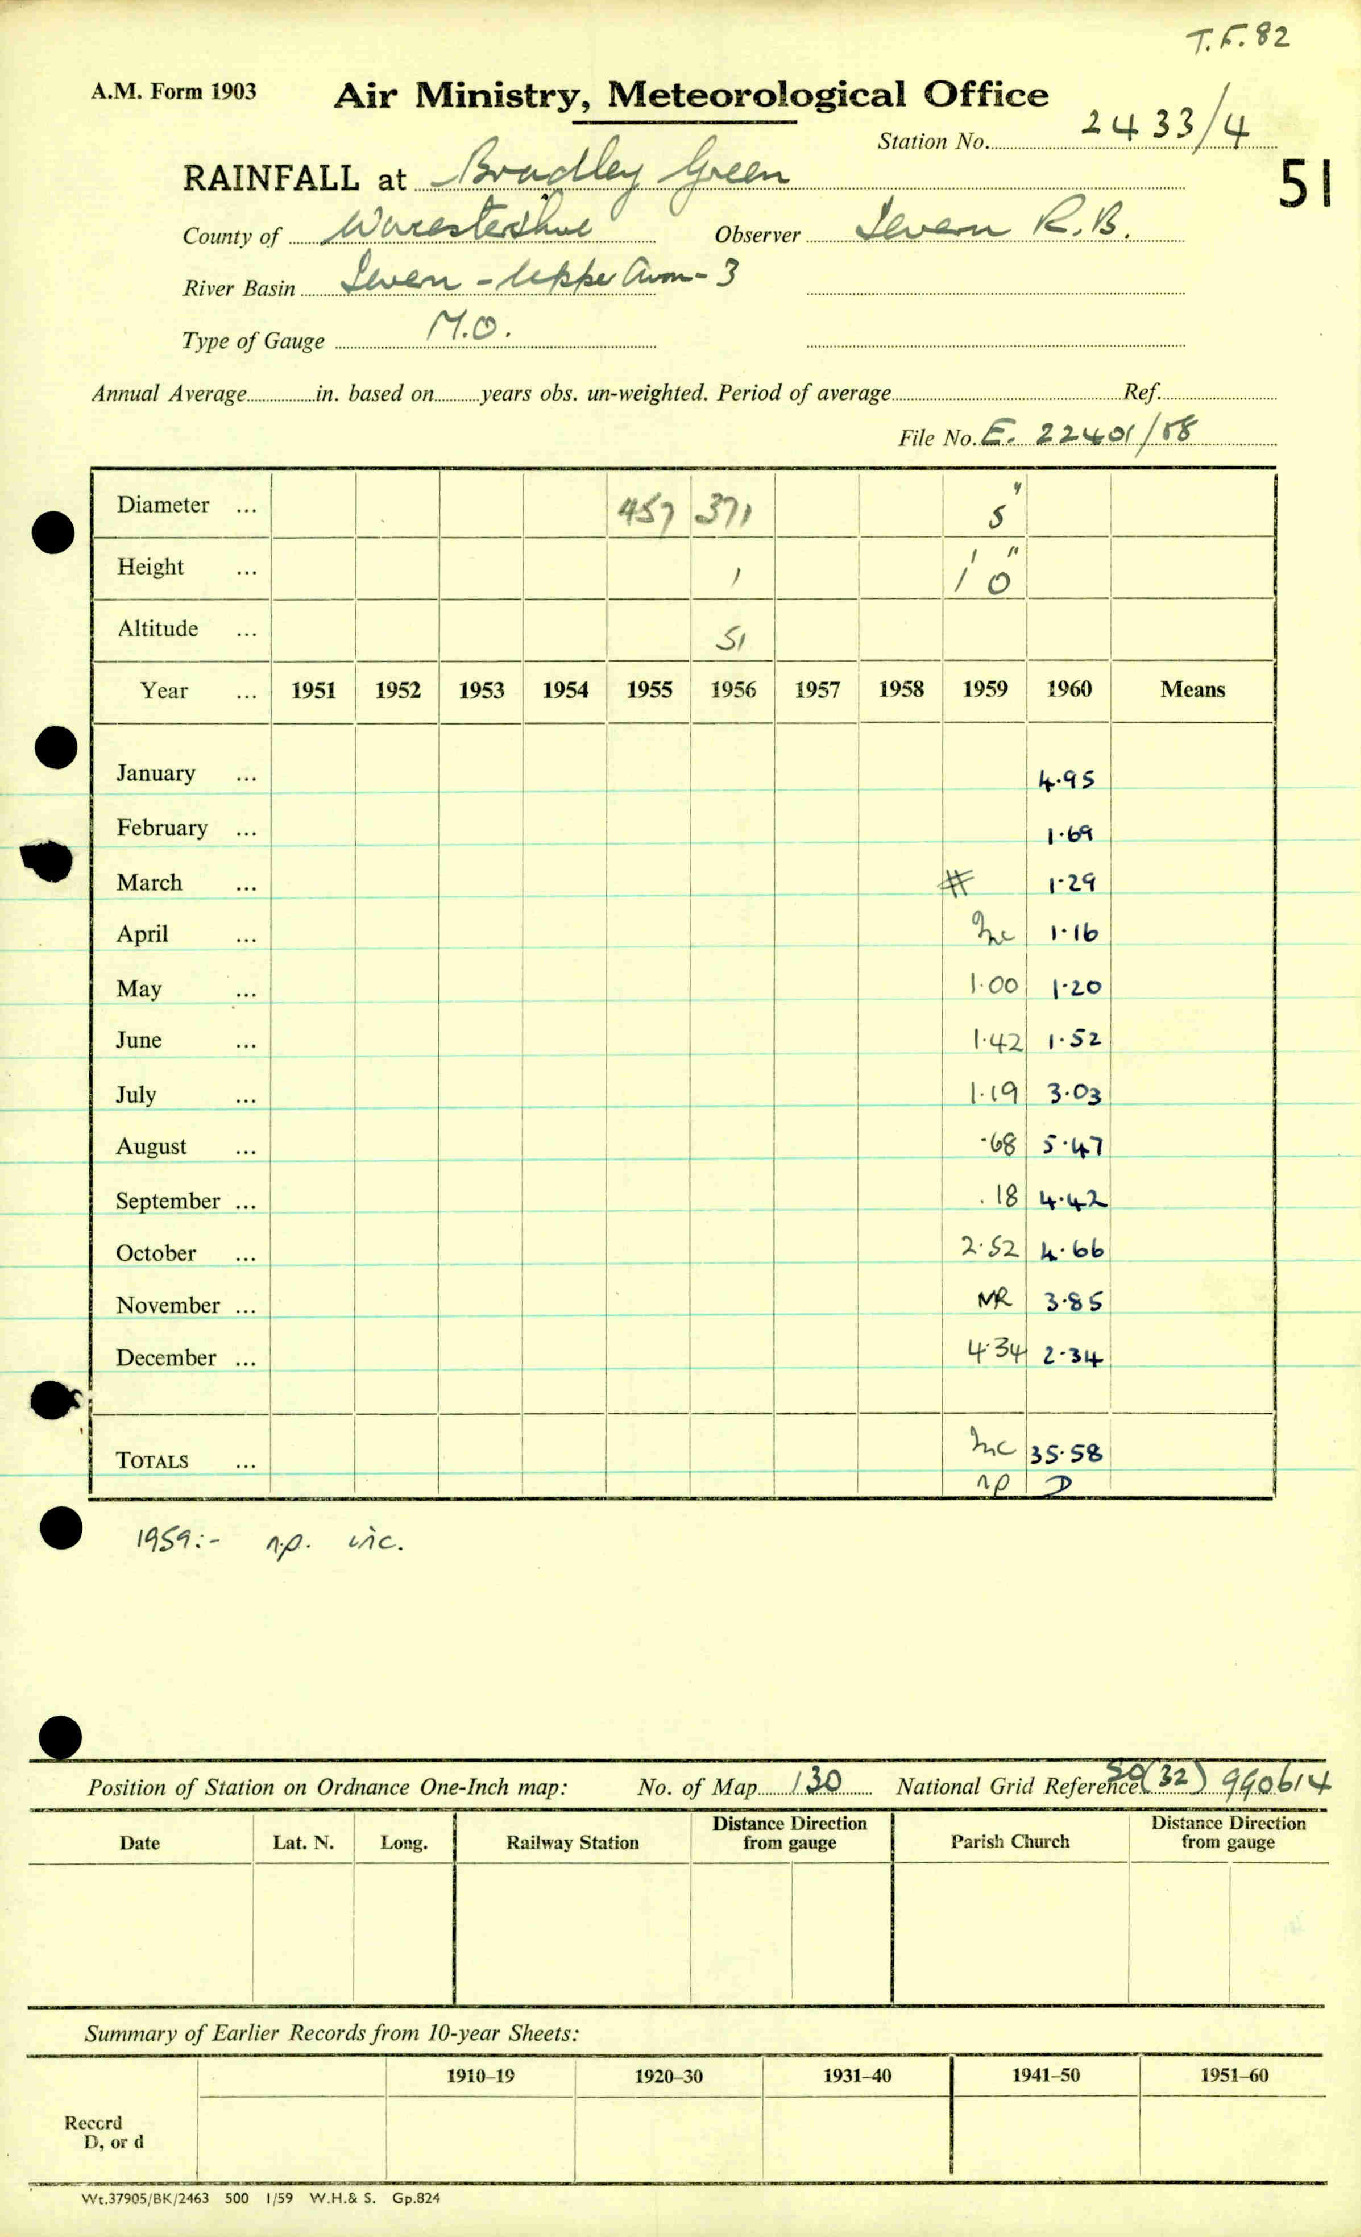 T.F.82
A.M. Form 1903 Air Ministry, Meteorological Office
Station No. 2433/4
RAINFALL at Bradley Green 51
County of Worcestershire Observer Severn R.B.
River Basin Severn - Upper Avon - 3
Type of Gauge M.O.
Annual Average in. based on years obs. un-weighted. Period of average Ref.
File No. E. 22401/58
Diameter ... 457 371 5"
Height ... 1 1' 0"
Altitude ... 51
Year ... 1951 1952 1953 1954 1955 1956 1957 1958 1959 1960 Means
January ... 4.95
February ... 1.69
March ... # 1.29
April ... Inc 1.16
May ... 1.00 1.20
June ... 1.42 1.52
July ... 1.19 3.03
August ... .68 5.47
September ... .18 4.42
October ... 2.52 4.66
November ... NR 3.85
December ... 4.34 2.34
TOTALS ... Inc 35.58
np D
1959:- n.p. inc.
Position of Station on Ordnance One-Inch map: No. of Map 130 National Grid Reference SO(32) 990614
Date Lat. N. Long. Railway Station Distance Direction from gauge Parish Church Distance Direction from gauge
Summary of Earlier Records from 10-year Sheets:
1910-19 1920-30 1931-40 1941-50 1951-60
Record
D, or d
Wt.37905/BK/2463 500 1/59 W.H.& S. Gp.824